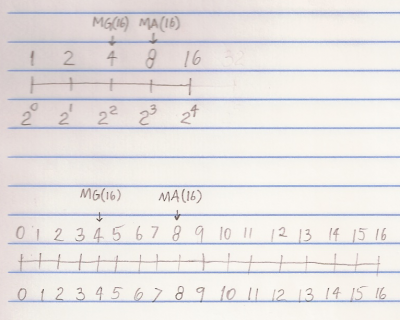 MG(16) MA(16)
1 2 4 8 16 32
2⁰ 2¹ 2² 2³ 2⁴
MG(16) MA(16)
0 1 2 3 4 5 6 7 8 9 10 11 12 13 14 15 16
0 1 2 3 4 5 6 7 8 9 10 11 12 13 14 15 16